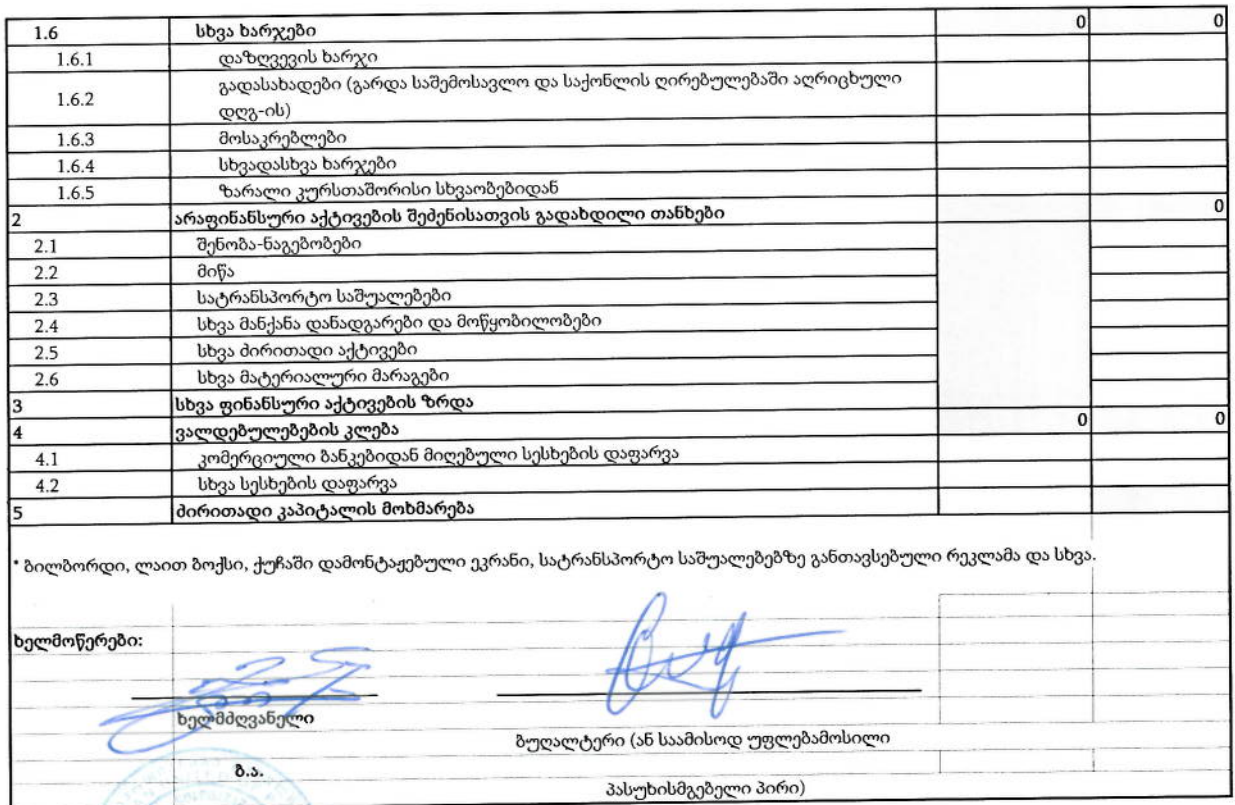 1.6 სხვა ხარჯები 0 0
1.6.1 დაზღვევის ხარჯი
1.6.2 გადასახადები (გარდა საშემოსავლო და საქონლის ღირებულებაში აღრიცხული
დღგ-ის)
1.6.3 მოსაკრებლები
1.6.4 სხვადასხვა ხარჯები
1.6.5 ზარალი კურსთაშორისი სხვაობებიდან
2 არაფინანსური აქტივების შეძენისათვის გადახდილი თანხები 0
2.1 შენობა-ნაგებობები
2.2 მიწა
2.3 სატრანსპორტო საშუალებები
2.4 სხვა მანქანა დანადგარები და მოწყობილობები
2.5 სხვა ძირითადი აქტივები
2.6 სხვა მატერიალური მარაგები
3 სხვა ფინანსური აქტივების ზრდა
4 ვალდებულებების კლება 0 0
4.1 კომერციული ბანკებიდან მიღებული სესხების დაფარვა
4.2 სხვა სესხების დაფარვა
5 ძირითადი კაპიტალის მოხმარება
* ბილბორდი, ლაით ბოქსი, ქუჩაში დამონტაჟებული ეკრანი, სატრანსპორტო საშუალებებზე განთავსებული რეკლამა და სხვა.
ხელმოწერები:
ხელმძღვანელი
ბუღალტერი (ან საამისოდ უფლებამოსილი
ბ.ა.
პასუხისმგებელი პირი)